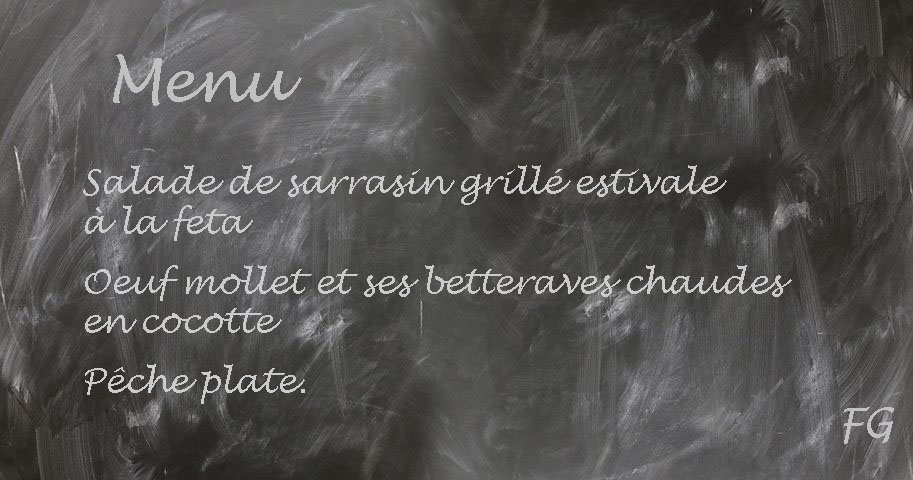 Menu
Salade de sarrasin grillé estivale
à la feta
Oeuf mollet et ses betteraves chaudes
en cocotte
Pêche plate.
FG